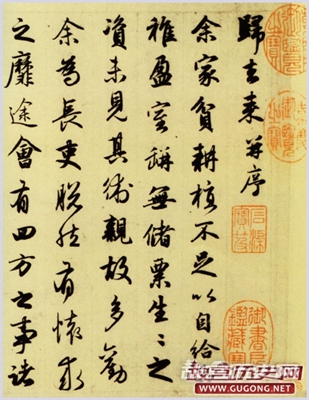 歸去来并序
余家貧耕植不足以自給
稚盈室缾無儲粟生〻之
資未見其術親故多勸
余為長吏脱然有懷求
之靡途會有四方之事諸
石渠寶笈
御書房鑑藏寶
历史网
WWW.GUGONG.NET